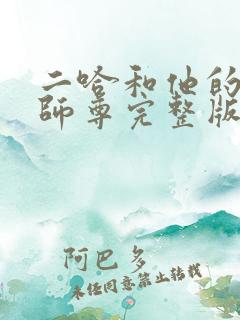 二哈和他的
師尊完整版
阿巴多
未任同意禁止转载